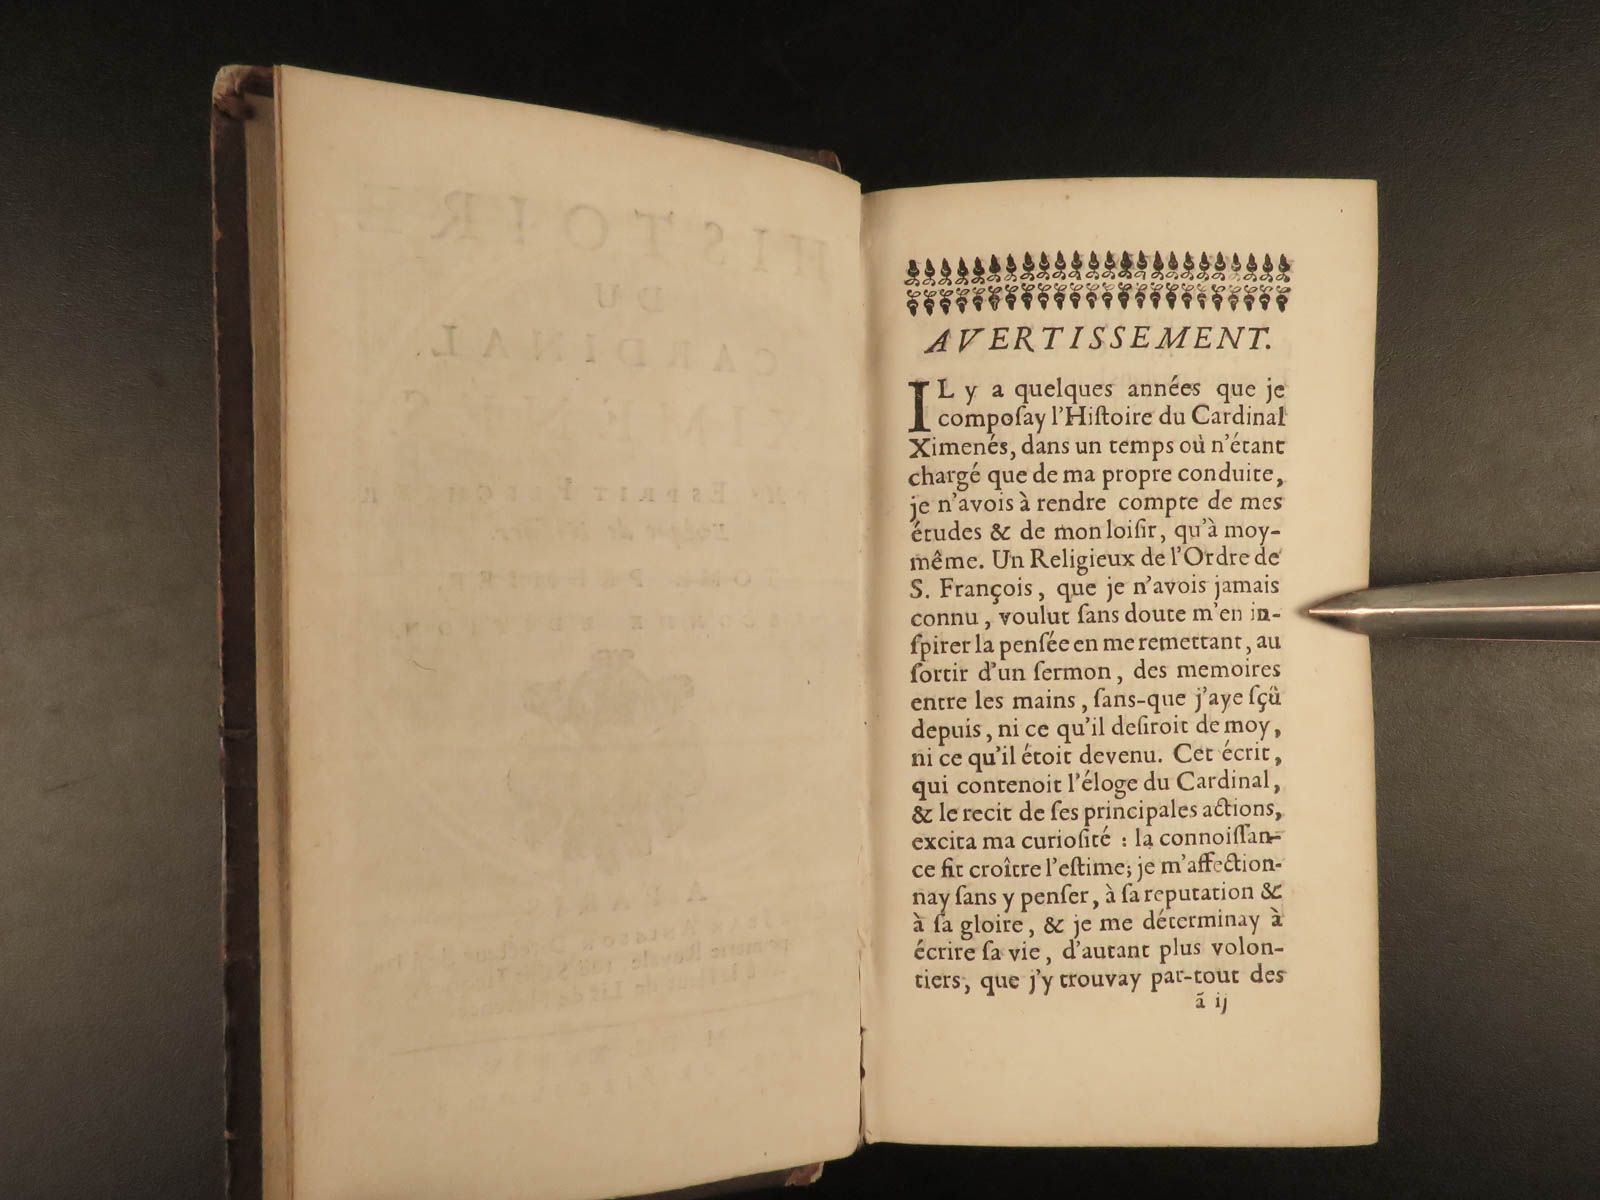 HISTOIRE
DU
CARDINAL
XIMENES
ESPRIT FLECHIER
Evêque de Nismes.
TOME PREMIER.
SECONDE EDITION.
A PARIS
JEAN ANISSON Directeur de
Royale, ruë
Fleur de Lis de Florence.
AVERTISSEMENT.
IL y a quelques années que je
compoſay l'Hiſtoire du Cardinal
Ximenés, dans un temps où n'étant
chargé que de ma propre conduite,
je n'avois à rendre compte de mes
études & de mon loiſir, qu'à moy-
même. Un Religieux de l'Ordre de
S. François, que je n'avois jamais
connu, voulut ſans doute m'en in-
ſpirer la penſée en me remettant, au
ſortir d'un ſermon, des memoires
entre les mains, ſans-que j'aye ſçû
depuis, ni ce qu'il deſiroit de moy,
ni ce qu'il étoit devenu. Cet écrit,
qui contenoit l'éloge du Cardinal,
& le recit de ſes principales actions,
excita ma curioſité : la connoiſſan-
ce fit croître l'eſtime; je m'affection-
nay ſans y penſer, à ſa reputation &
à ſa gloire, & je me déterminay à
écrire ſa vie, d'autant plus volon-
tiers, que j'y trouvay par-tout des
ã ij